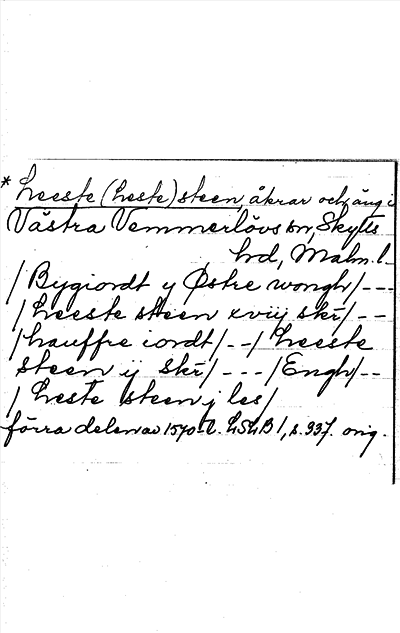 * heeste (heste) steen, åkrar och äng i
Västra Vemmerlövs sn, Skytts
hd, Malm. l.
/Bygiordt y Østre wongh/---
/heeste steen xviij skr̄/--
/hauffre iordt/--/heeste
steen ij skr̄/---/Engh/--
/heste steen j les/
förra delen av 1570-t. LSLB I, s. 337. orig.